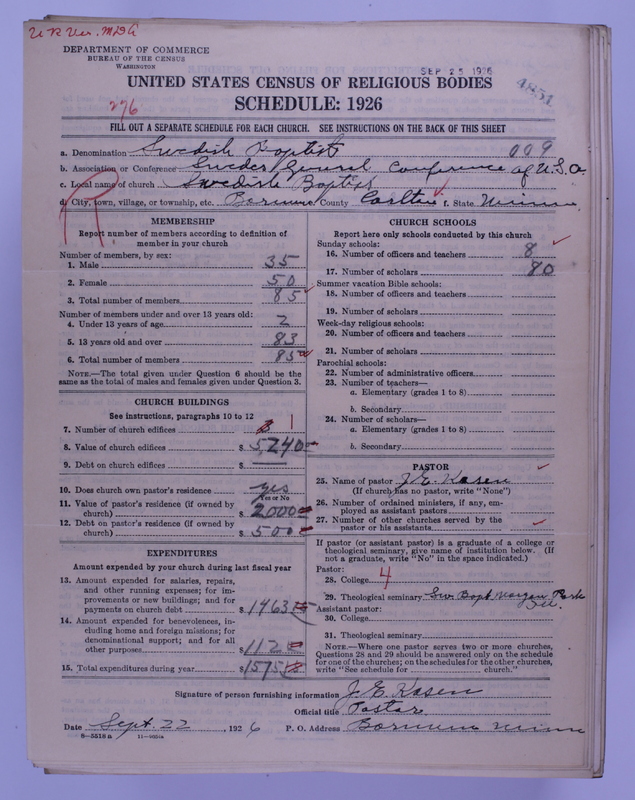 U R Ver. MDG
DEPARTMENT OF COMMERCE
BUREAU OF THE CENSUS
WASHINGTON
SEP 25 1926
4851
UNITED STATES CENSUS OF RELIGIOUS BODIES
SCHEDULE: 1926
276
FILL OUT A SEPARATE SCHEDULE FOR EACH CHURCH. SEE INSTRUCTIONS ON THE BACK OF THIS SHEET
a. Denomination Swedish Baptist 009
b. Association or Conference Swedes General Conference of U.S.A.
c. Local name of church Swedish Baptist
d. City, town, village, or township, etc. Barnum County Carlton f. State Minn
R
MEMBERSHIP
Report number of members according to definition of
member in your church
Number of members, by sex:
1. Male 35
2. Female 50
3. Total number of members 85
Number of members under and over 13 years old:
4. Under 13 years of age 2
5. 13 years old and over 83
6. Total number of members 85
NOTE.—The total given under Question 6 should be
same as the total of males and females given under Question 3.
CHURCH BUILDINGS
See instructions, paragraphs 10 to 12
7. Number of church edifices 1
8. Value of church edifices $ 5,240
9. Debt on church edifices $
10. Does church own pastor's residence yes
Yes or No
11. Value of pastor's residence (if owned by
church) $ 2000
12. Debt on pastor's residence (if owned by
church) $ 500
EXPENDITURES
Amount expended by your church during last fiscal year
13. Amount expended for salaries, repairs,
and other running expenses; for im-
provements or new buildings; and for
payments on church debt $ 1463
14. Amount expended for benevolences, in-
cluding home and foreign missions; for
denominational support; and for all
other purposes $ 112
15. Total expenditures during year $ 1575
CHURCH SCHOOLS
Report here only schools conducted by this church
Sunday schools:
16. Number of officers and teachers 8
17. Number of scholars 80
Summer vacation Bible schools:
18. Number of officers and teachers
19. Number of scholars
Week-day religious schools:
20. Number of officers and teachers
21. Number of scholars
Parochial schools:
22. Number of administrative officers
23. Number of teachers—
a. Elementary (grades 1 to 8)
b. Secondary
24. Number of scholars—
a. Elementary (grades 1 to 8)
b. Secondary
PASTOR
25. Name of pastor J. E. Kasen
(If church has no pastor, write "None")
26. Number of ordained ministers, if any, em-
ployed as assistant pastors
27. Number of other churches served by the
pastor or his assistants
If pastor (or assistant pastor) is a graduate of a college or
theological seminary, give name of institution below. (If
not a graduate, write "No" in the space indicated.)
Pastor:
28. College 4
29. Theological seminary Sw. Bapt Morgan Park
Ill.
Assistant pastor:
30. College
31. Theological seminary
NOTE.—Where one pastor serves two or more churches,
Questions 28 and 29 should be answered only on the schedule
for one of the churches; on the schedules for the other churches,
write "See schedule for church."
Signature of person furnishing information J. E. Kasen
Official title Pastor
Date Sept. 22, 1926 P. O. Address Barnum Minn
8—5518 a